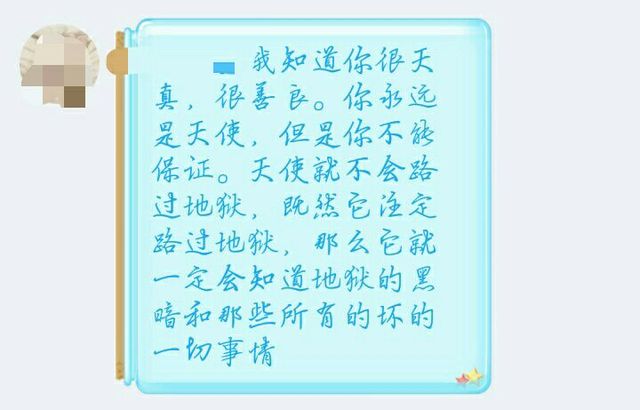 我知道你很天
真，很善良。你永远
是天使，但是你不能
保证。天使就不会路
过地狱，既然它注定
路过地狱，那么它就
一定会知道地狱的黑
暗和那些所有的坏的
一切事情